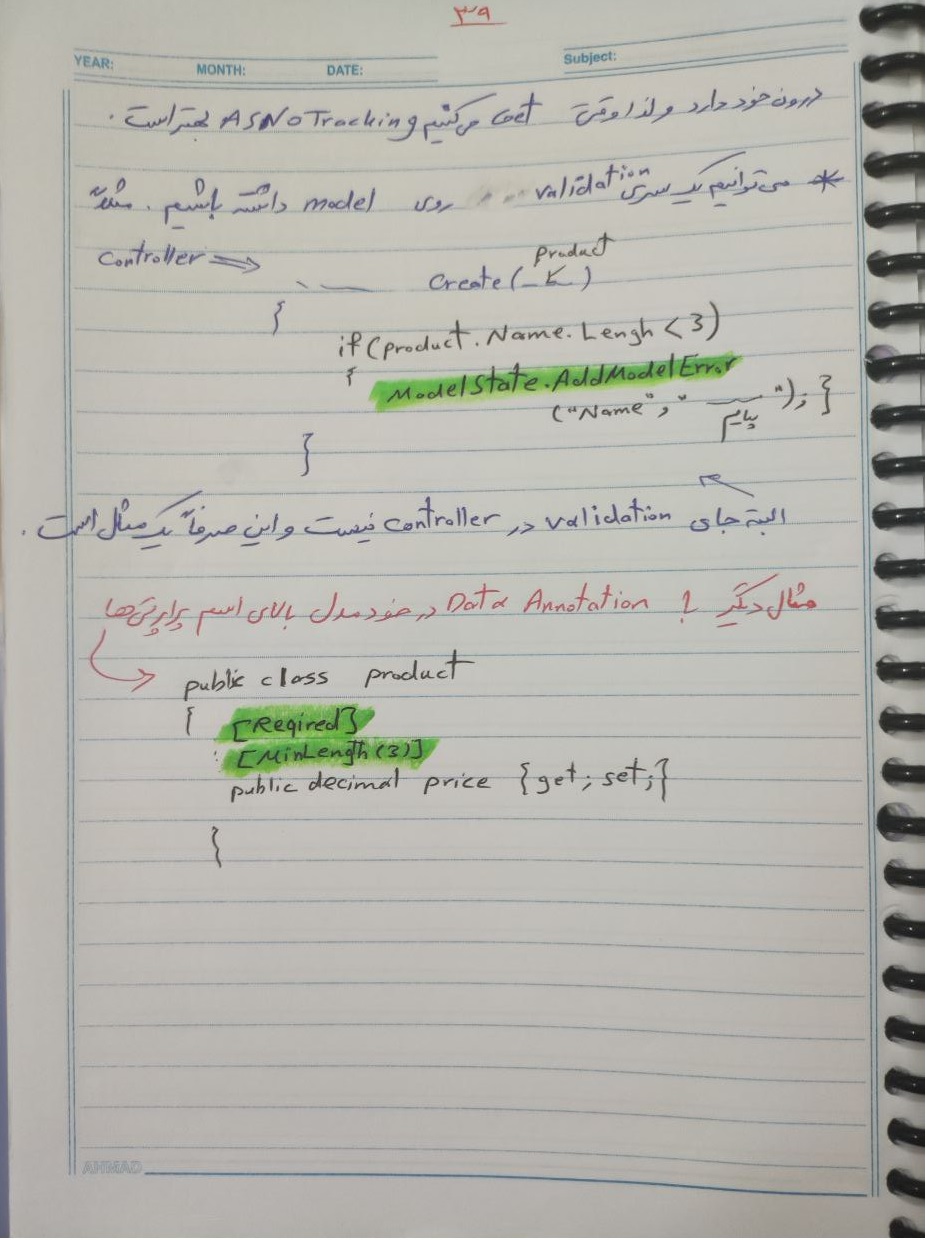 ۳۹
YEAR: MONTH: DATE: Subject:
درون خود دارد و لذا وقتی Get می‌کنیم AsNoTracking بهتر است.
* می‌توانیم یک سری validation روی model داشته باشیم. مثلاً
Controller ⇒
product
Create( )
{
if (product.Name.Lengh < 3)
{ ModelState.AddModelError
("Name", " پیام "); }
}
البته جای validation در controller نیست و این صرفاً یک مثال است.
مثال دیگر؟ Data Annotation در خود مدل بالای اسم پراپرتی‌ها
public class product
{ [Reqired]
[MinLength(3)]
public decimal price {get; set;}
}
AHMAD